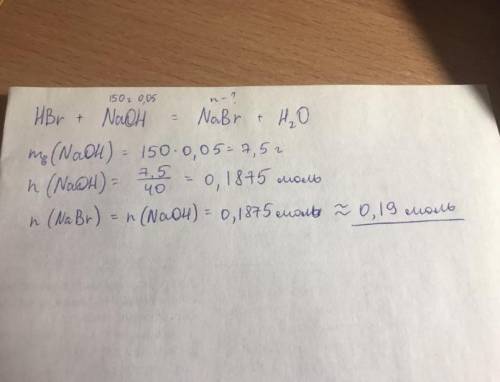 150г 0,05 n - ?
HBr + NaOH = NaBr + H₂O
mв (NaOH) = 150 · 0,05 = 7,5 г
n (NaOH) = 7,5/40 = 0,1875 моль
n (NaBr) = n (NaOH) = 0,1875 моль ≈ 0,19 моль